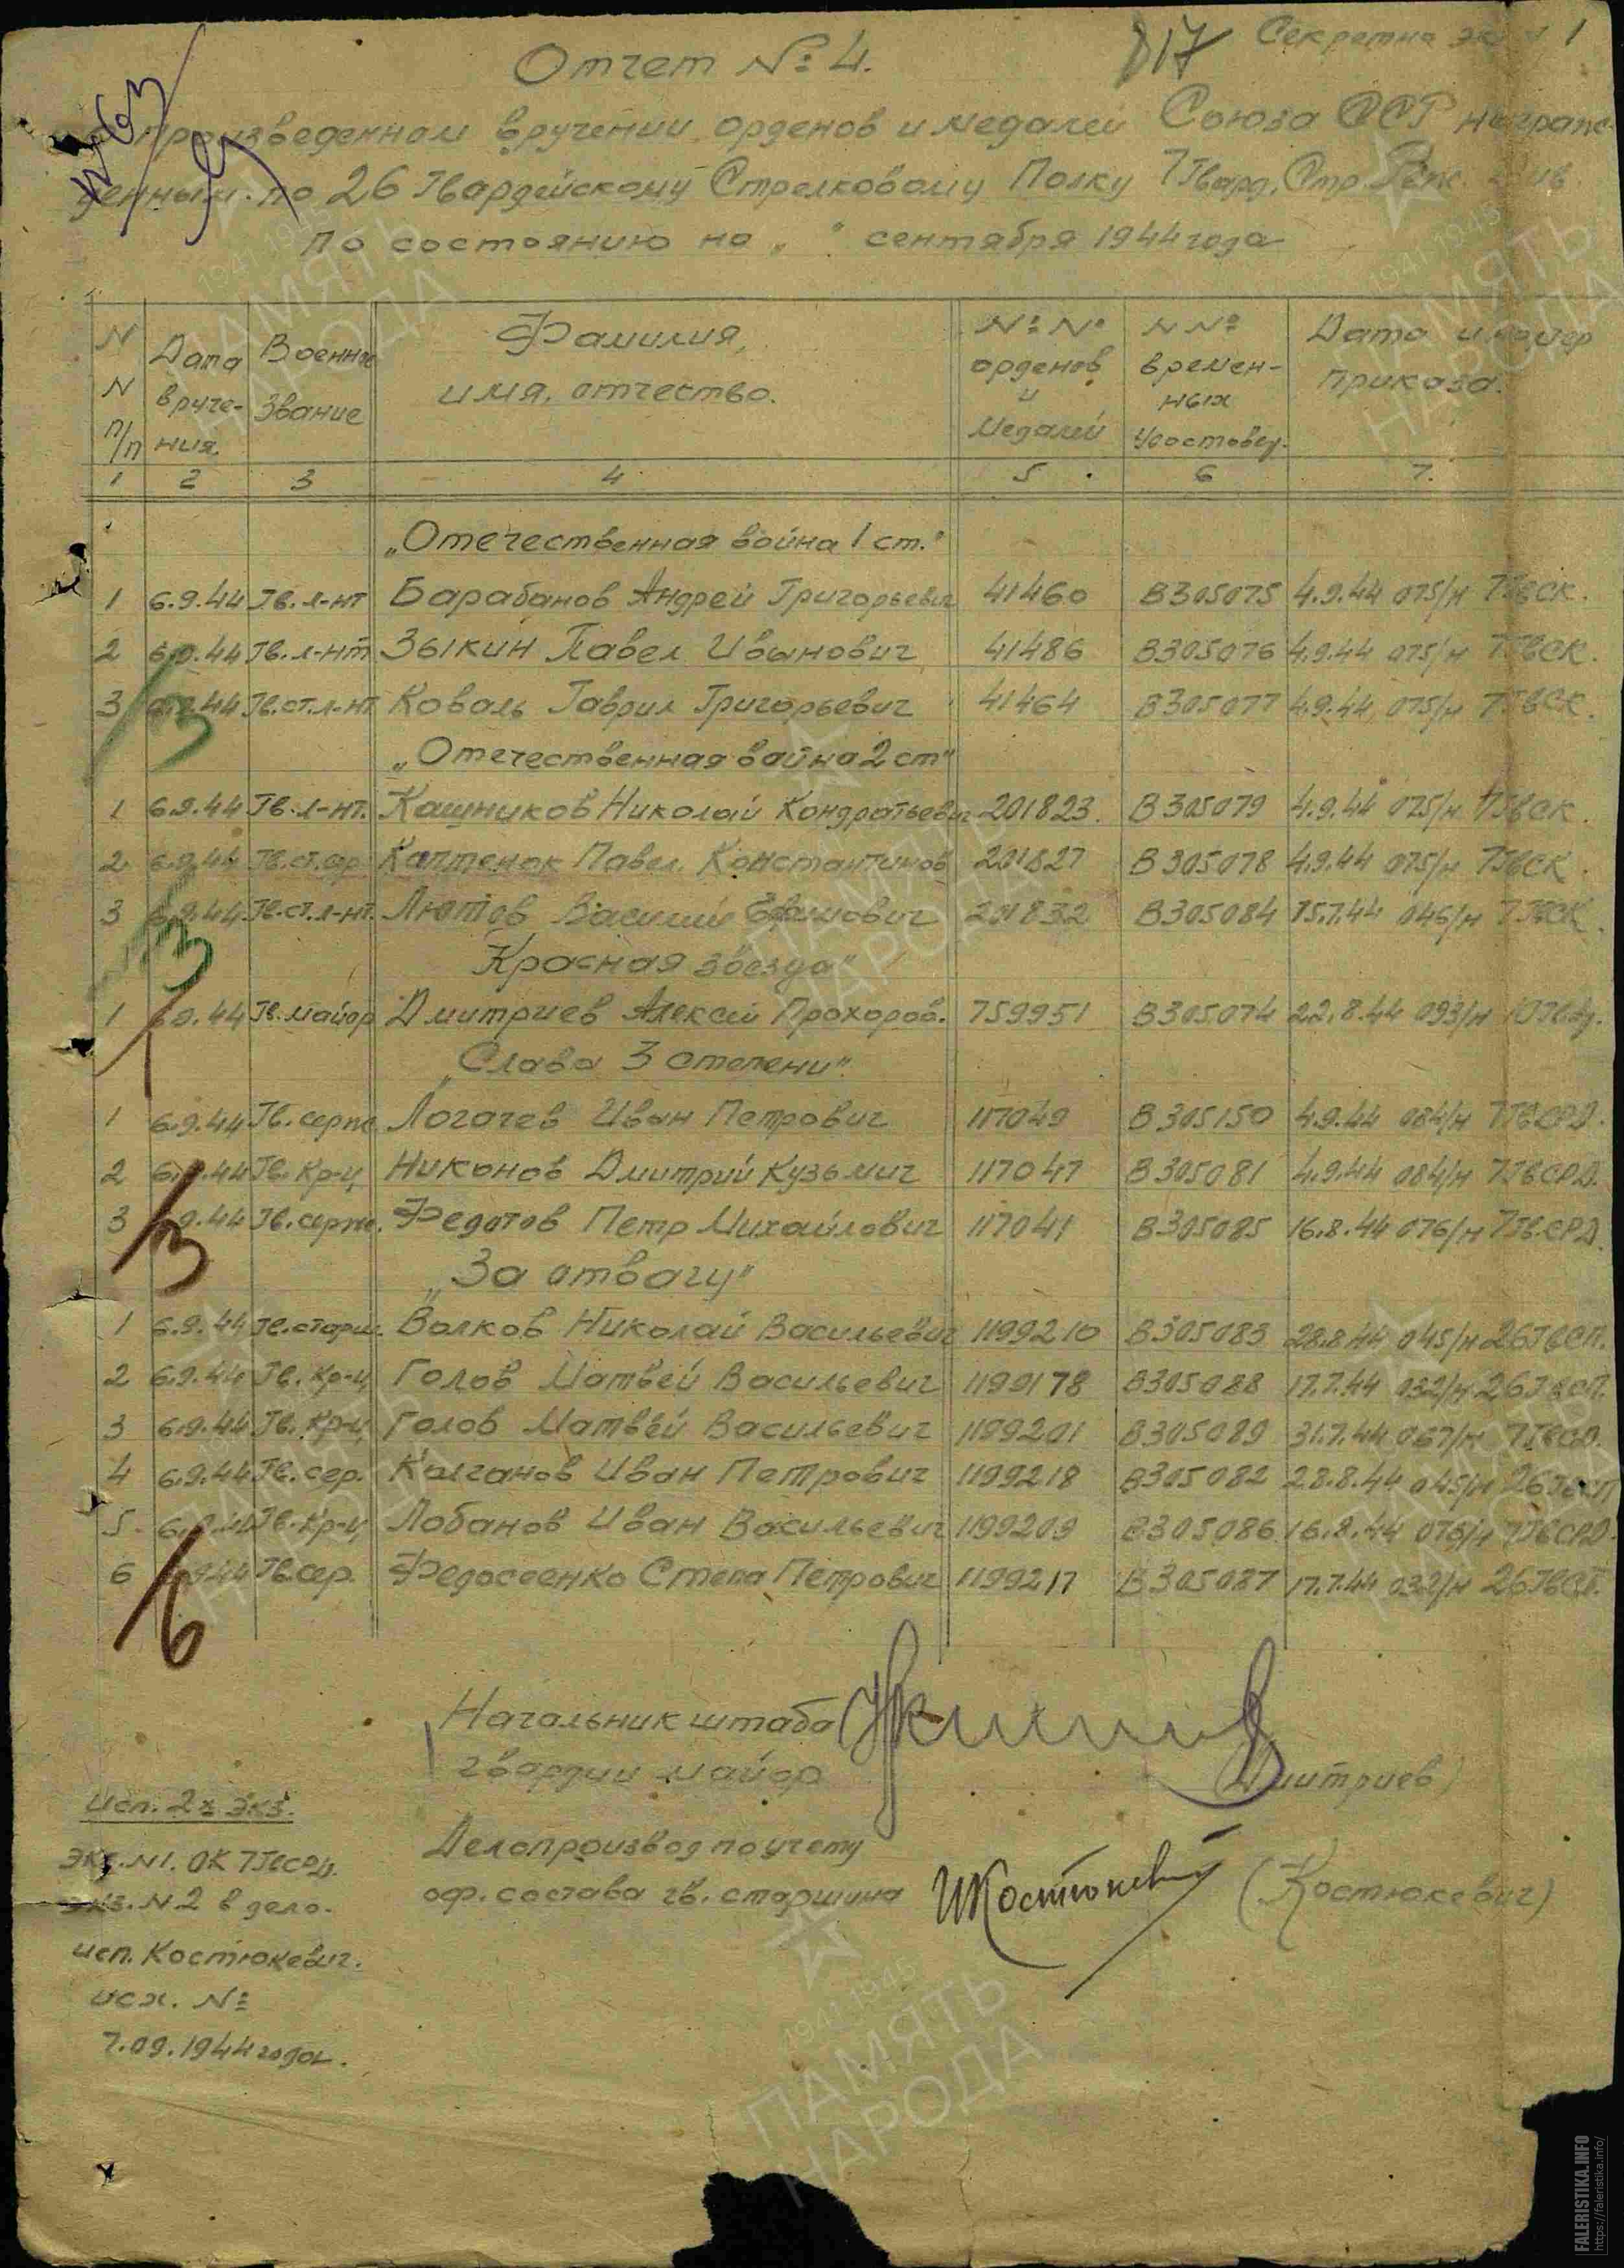 Секретно экз. № 1
817
Отчет №: 4.
произведенном вручении орденов и медалей Союза ССР награж-
денным по 26 Гвардейскому Стрелковому Полку 7 Гвард. Стр.
по состоянию на „ " сентября 1944 года
N N п/п | Дата вруче-ния. | Военное Звание | Фамилия, имя, отчество. | №: № орденов и медалей | № № времен-ных удостовер. | Дата и номер приказа.
1 2 3 4 5 6 7.
„Отечественная война 1 ст."
1 6.9.44 Гв. л-нт Барабанов Андрей Григорьевич 41460 В305075 4.9.44 075/н 7ГвСК.
2 6.9.44 Гв. л-нт Зыкин Павел Иванович 41486 В305076 4.9.44 075/н 7ГвСК.
3 6.9.44 Гв. ст. л-нт Коваль Гаврил Григорьевич 41464 В305077 4.9.44 075/н 7ГвСК.
3
„Отечественная война 2 ст"
1 6.9.44 Гв. л-нт. Кашников Николай Кондратьевич 201823. В305079 4.9.44 075/н 7ГвСК.
2 6.9.44 Гв. ст. Каптенок Павел. Константинов 201827 В305078 4.9.44 075/н 7ГвСК.
3 6.9.44 Гв. ст. л-нт. Лютов Василий Ефимович 201832 В305084 15.7.44 046/н 7ГвСК.
3
Красная звезда"
1 6.9.44 Гв. майор Дмитриев Алексей Прохоров. 759951 В305074 22.8.44 093/н
1
„Слава 3 степени"
1 6.9.44 Гв. серж. Логачев Иван Петрович 117049 В305150 4.9.44 084/н 7ГвСРД.
2 6.9.44 Гв. Кр-ц Никонов Дмитрий Кузьмич 117047 В305081 4.9.44 084/н 7ГвСРД.
3 6.9.44 Гв. серж. Федотов Петр Михайлович 117041 В305085 16.8.44 076/н 7Гв.СРД.
3
„За отвагу"
1 6.9.44 Гв. старш. Волков Николай Васильевич 1199210 В305083 28.8.44 045/н 26ГвСП.
2 6.9.44 Гв. Кр-ц Голов Матвей Васильевич 1199178 В305088 17.7.44 032/н 26ГвСП.
3 6.9.44 Гв. Кр-ц Голов Матвей Васильевич 1199201 В305089 31.7.44 067/н 7ГвСД.
4 6.9.44 Гв. сер. Колганов Иван Петрович 1199218 В305082 28.8.44 045/н 26ГвСП
5. 6.9.44 Гв. Кр-ц Лобанов Иван Васильевич 1199209 В305086 16.8.44 076/н 7ГвСРД.
6 6.9.44 Гв. сер. Федосеенко Степа Петрович 1199217 В305087 17.7.44 032/н 26ГвСП.
6
Начальник штаба
гвардии майор Дмитриев)
Делопроизвод по учету
оф. состава гв. старшина ИКостюкевич (Костюкевич)
Исп. 2х экз.
экз. N1. ОК 7ГвСРД.
экз. N2 в дело.
исп. Костюкевич.
исх. №:
7.09.1944 года.
1941 1945
ПАМЯТЬ
НАРОДА
FALERISTIKA.INFO
https://faleristika.info/